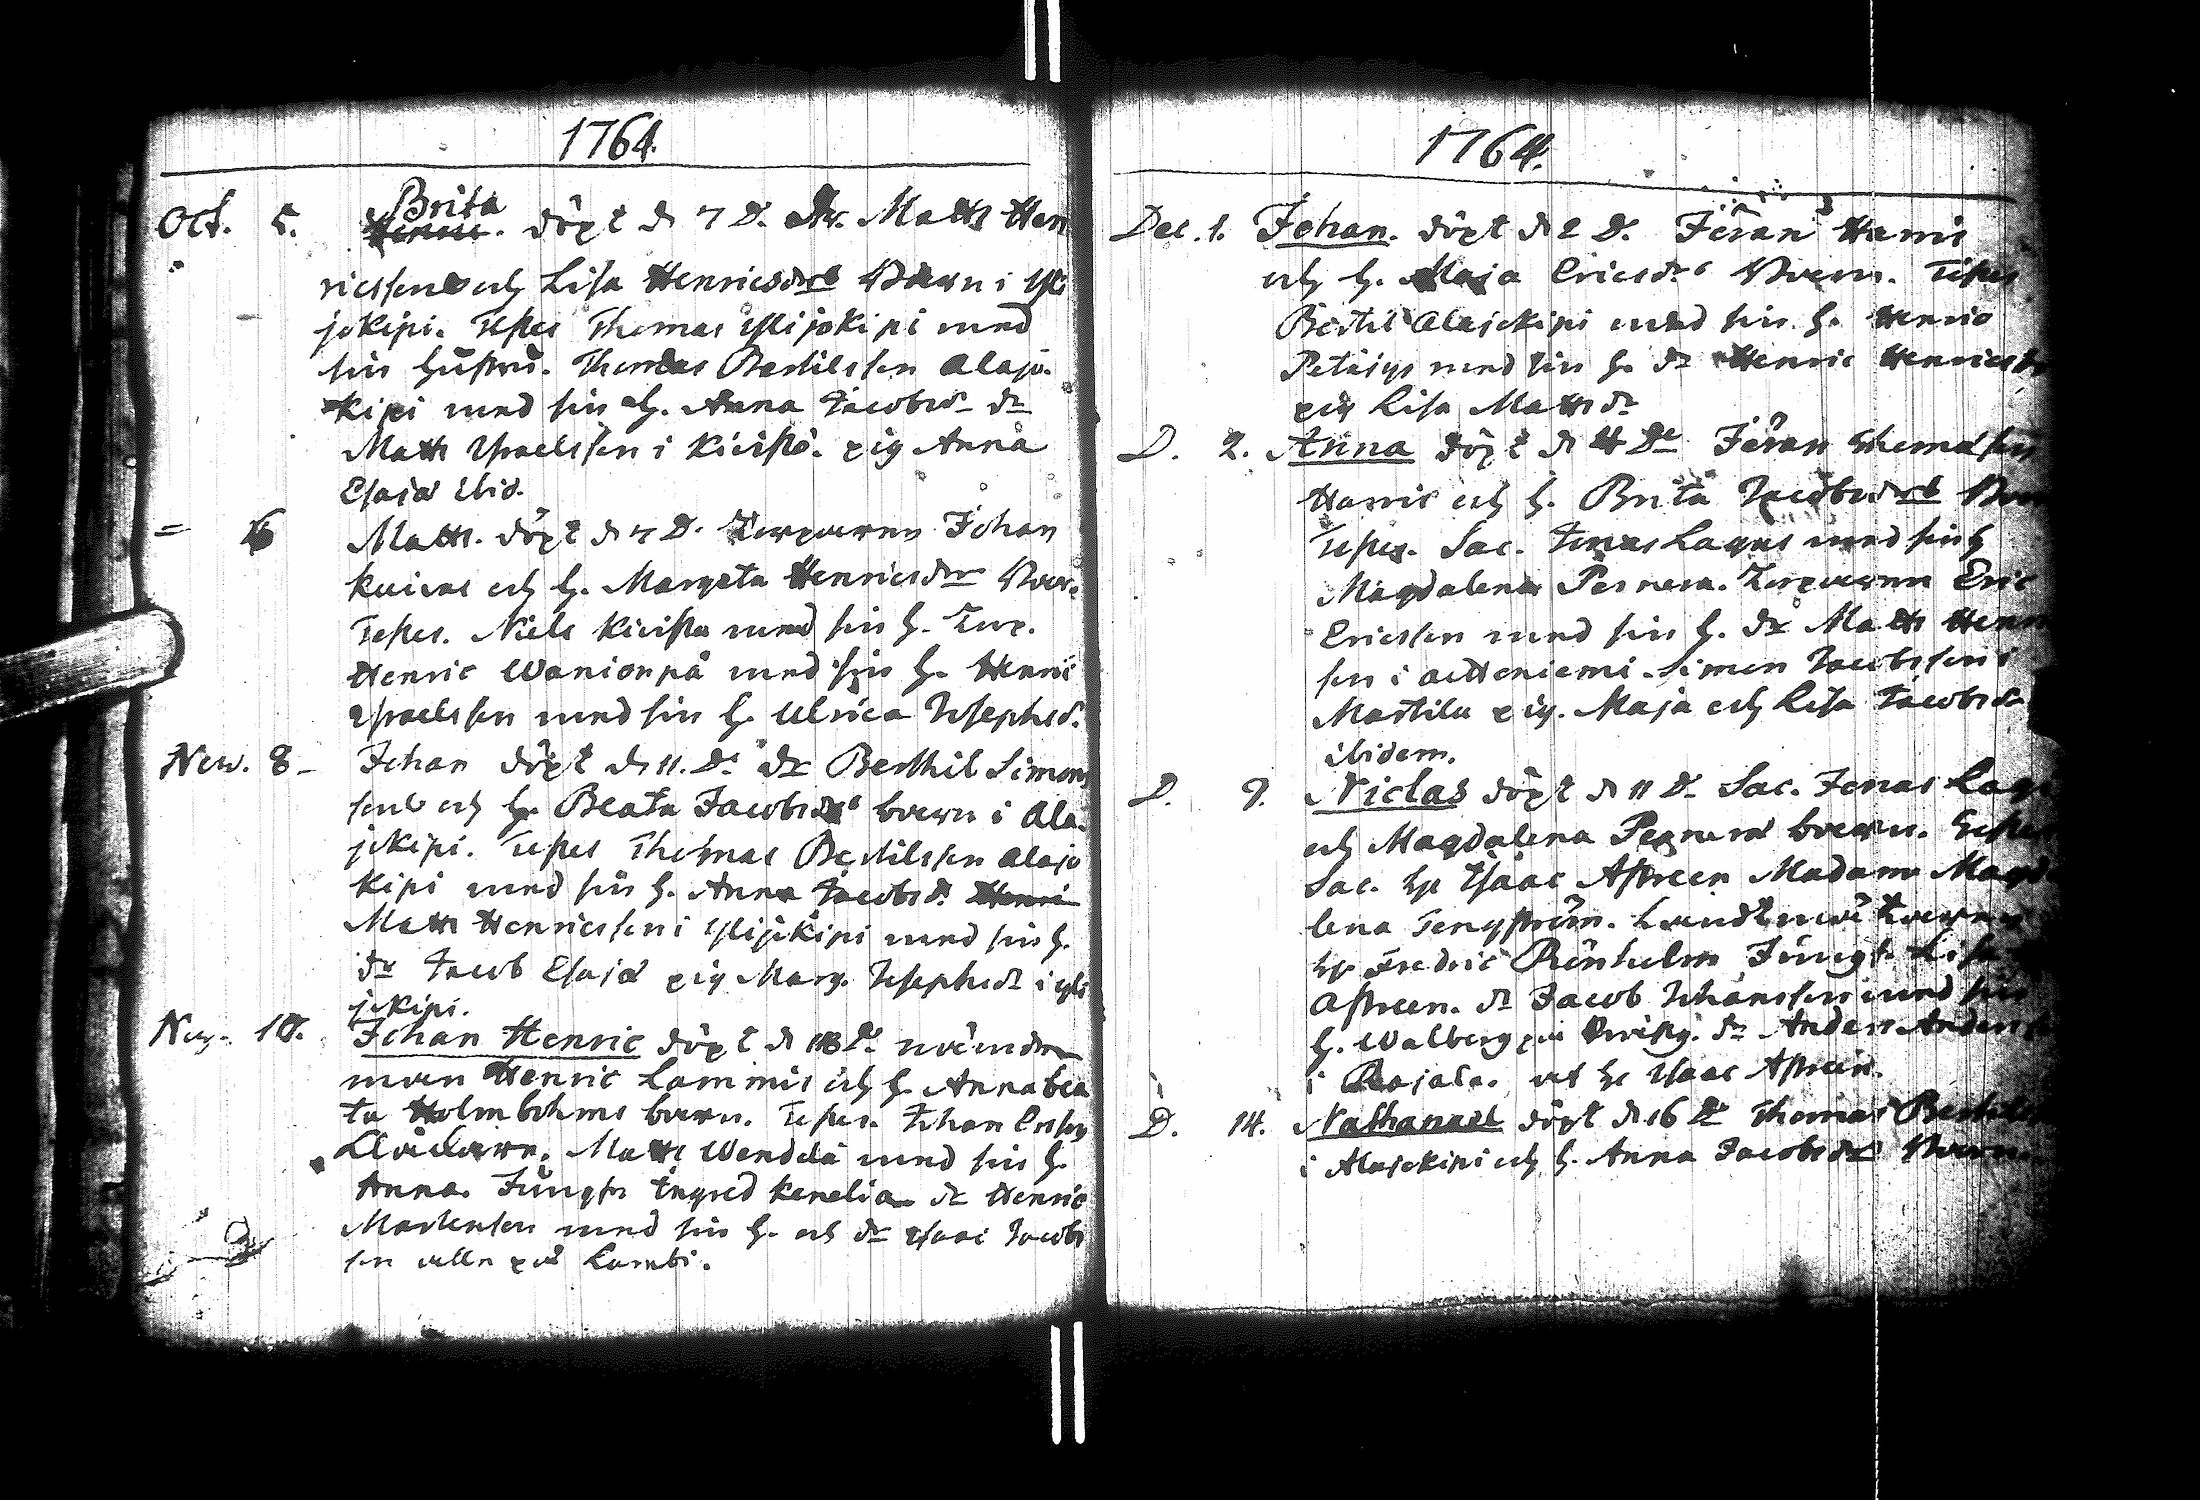 1764.
Oct. 5. Brita
döpt d 7 D. dr. Matts Hen
ricssons och Lisa Henricsdrs barn i Yli
jokipi. Testes Thomas Ylijokipi med
sin hustru. Thomas Bertilsson Alajo-
kipi med sin h. Anna Jacobsd. dr
Matts Ysraelsson i Kivistö. pig Anna
Esajæ ibid.
= 6 Matts. döpt d 7 D. Torparens Johan
Kuivas och h. Margeta Henricsdrs
Testes. Niels Kivistö med sin h. Torp.
Henric Wanionpä med sin h. Henric
Ysraelsson med sin h. Ulrica Josephsd.
Nov. 8 - Johan döpt d 11. D. dr Berthil Simons
sons och h. Beata Jacobsdrs barn i Ala-
jokipi. Testes Thomas Bertilsson Alajo
kipi med sin h. Anna Jacobsd. Henri
Matts Henricsson i Ylijokipi med sin h.
dr Jacob Esajæ pig Marg. Josephsdr i yli
jokipi.
Nov. 10. Johan Henric döpt d 18 D.
man Henric Lammis och h. Anna Bea
ta Holmbohms barn. Testes. Johan Ersson
Matts Wendelä med sin h.
Anna. Jungfr Ingred Kenelia dr Henric
Mortensson med sin h. och dr Ysaac Jacobs
son alla på Lambi.
1764.
Dec. 1. Johan. döpt d 2 D. Jöran Harris
och h. Maja Ericsdrs barn. Testes
Bertil Alajokipi med sin h. Henric
Petäjys med sin h. dr Henric Henricsson
pig Lisa Mattsdr
D. 2. Anna döpt d 4 De Jöran Thomasson
Harris och h. Brita Jacobsdrs
Testes. Sac. Jonas Lagus med sin h
Magdalena Pernera. Torparen Eric
Ericsson med sin h. dr Matts Henric
son i Aittoniemi. Simon Jacobsson i
Mattila pig. Maja och Lisa Jacobsdr
ibidem.
D. 9. Niclas döpt d 11 D. Sac. Jonas Lagi
och Magdalena Pernera barn. Testes
Sac. hr Ysaac Asreen Madame Magda
lena Tengström.
hr Fredric Rönholm Jungfr Lisa
Asreen. dr Jacob Johansson med sin
h. Walberg på dr Anders Andersson
i Rajala. och hr Ysaac Asreen.
D. 14. Nathanael döpt d 16 D. Thomas Bertils
i Alajokipi och h. Anna Jacobsdrs barn